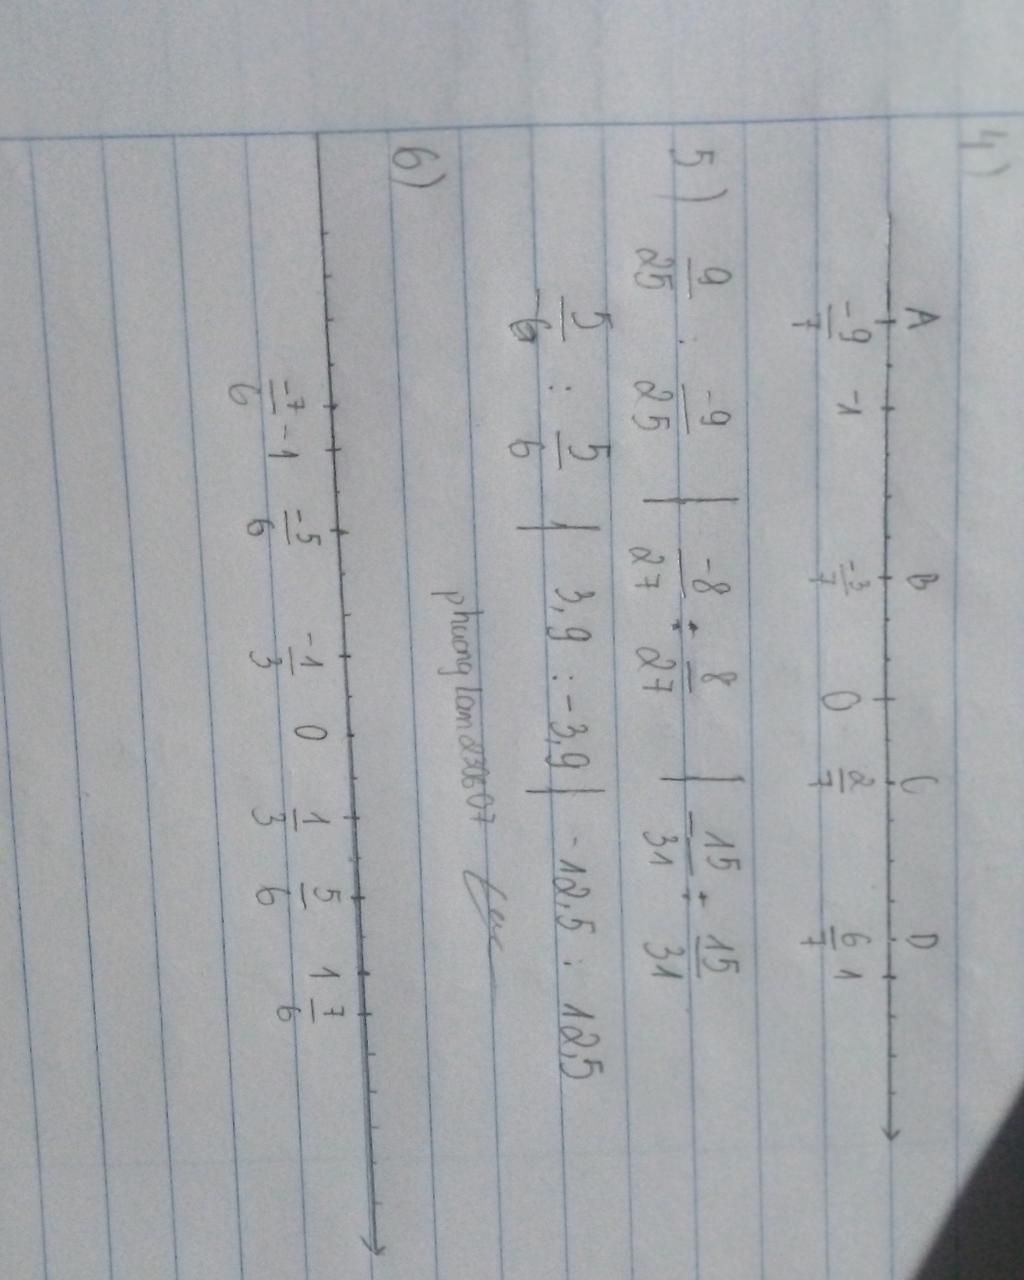 4)
A B C D
-9/7 -1 -3/7 0 2/7 6/7 1
5) 9/25 : -9/25 | -8/27 : 8/27 | 15/-31 : 15/31
5/-6 : 5/6 | 3,9 : -3,9 | -12,5 : 12,5
phuonglam230607
6)
-7/6 -1 -5/6 -1/3 0 1/3 5/6 1 7/6